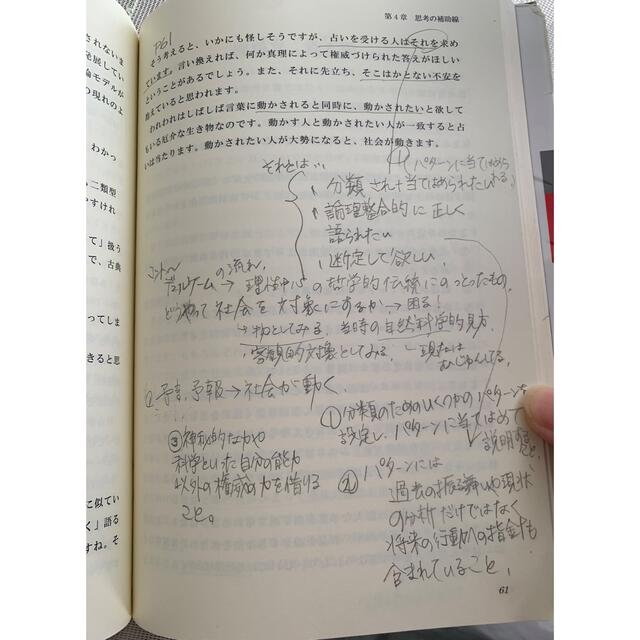 第4章 思考の補助線
P61
そう考えると、いかにも怪しそうですが、占いを受ける人はそれを求め
ています。言い換えれば、何か真理によって権威づけられた答えがほしい
ということがあるでしょう。また、それに先立ち、そこはかとない不安を
抱えていると思われます。
われわれはしばしば言葉に動かされると同時に、動かされたいと欲して
もいる厄介な生き物なのです。動かす人と動かされたい人が一致すると占
いは当たります。動かされたい人が大勢になると、社会が動きます。
されないま
発展してい
論モデルが
の現れのよ
わかっ
二類型
やすけれ
て」扱う
で、古典
ってしま
きると思
に似てい
く」語る
すね。そ
それとは…
パターンに当てはめら
れる。
分類され+当てはめられたい
論理整合的に正しく
語られたい
断定して欲しい
コント〜
デュルケームの流れ。
→理性中心の哲学的伝統にのっとったもの。
どうやって社会を対象にするか→困る!
↳物としてみる。当時の自然科学的見方
客観的対壊としてみる。
↳現在は
予言、予報→社会が動く。
①分類のためのいくつかのパターンを
設定し、パターンに当てはめて
説明すること。
②パターンには
過去の振る舞いや現状
の分析だけではなく
将来の行動への指金も
含まれていること、
③神秘的な力や
科学といった自分の能力
以外の権威の力を借りる
こと。
61